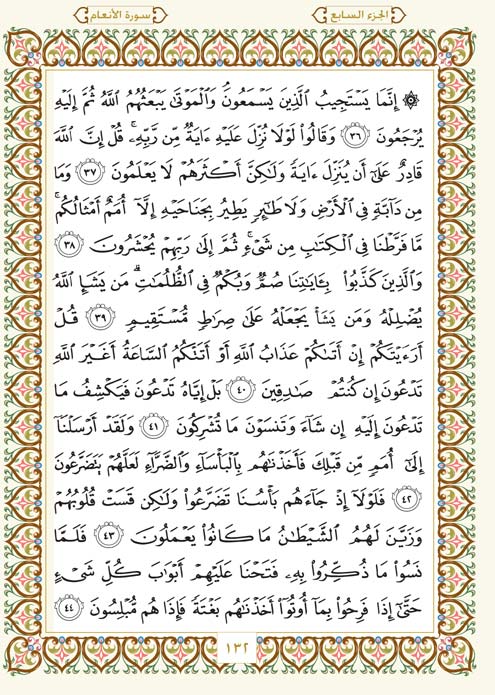 الجزء السابع
سورة الأنعام
۞ إِنَّمَا يَسْتَجِيبُ الَّذِينَ يَسْمَعُونَ ۘ وَالْمَوْتَىٰ يَبْعَثُهُمُ اللَّهُ ثُمَّ إِلَيْهِ
يُرْجَعُونَ ٣٦ وَقَالُوا لَوْلَا نُزِّلَ عَلَيْهِ ءَايَةٌ مِّن رَّبِّهِۦ ۚ قُلْ إِنَّ اللَّهَ
قَادِرٌ عَلَىٰٓ أَن يُنَزِّلَ ءَايَةً وَلَـٰكِنَّ أَكْثَرَهُمْ لَا يَعْلَمُونَ ٣٧ وَمَا
مِن دَآبَّةٍ فِي الْأَرْضِ وَلَا طَـٰٓئِرٍ يَطِيرُ بِجَنَاحَيْهِ إِلَّآ أُمَمٌ أَمْثَالُكُم ۚ
مَّا فَرَّطْنَا فِي الْكِتَـٰبِ مِن شَيْءٍ ۚ ثُمَّ إِلَىٰ رَبِّهِمْ يُحْشَرُونَ ٣٨
وَالَّذِينَ كَذَّبُوا بِـَٔايَـٰتِنَا صُمٌّ وَبُكْمٌ فِي الظُّلُمَـٰتِ ۗ مَن يَشَإِ اللَّهُ
يُضْلِلْهُ وَمَن يَشَأْ يَجْعَلْهُ عَلَىٰ صِرَٰطٍ مُّسْتَقِيمٍ ٣٩ قُلْ
أَرَءَيْتَكُمْ إِنْ أَتَىٰكُمْ عَذَابُ اللَّهِ أَوْ أَتَتْكُمُ السَّاعَةُ أَغَيْرَ اللَّهِ
تَدْعُونَ إِن كُنتُمْ صَـٰدِقِينَ ٤٠ بَلْ إِيَّاهُ تَدْعُونَ فَيَكْشِفُ مَا
تَدْعُونَ إِلَيْهِ إِن شَآءَ وَتَنسَوْنَ مَا تُشْرِكُونَ ٤١ وَلَقَدْ أَرْسَلْنَآ
إِلَىٰٓ أُمَمٍ مِّن قَبْلِكَ فَأَخَذْنَـٰهُم بِالْبَأْسَآءِ وَالضَّرَّآءِ لَعَلَّهُمْ يَتَضَرَّعُونَ
٤٢ فَلَوْلَآ إِذْ جَآءَهُم بَأْسُنَا تَضَرَّعُوا وَلَـٰكِن قَسَتْ قُلُوبُهُمْ
وَزَيَّنَ لَهُمُ الشَّيْطَـٰنُ مَا كَانُوا يَعْمَلُونَ ٤٣ فَلَمَّا
نَسُوا مَا ذُكِّرُوا بِهِۦ فَتَحْنَا عَلَيْهِمْ أَبْوَٰبَ كُلِّ شَيْءٍ
حَتَّىٰٓ إِذَا فَرِحُوا بِمَآ أُوتُوٓا أَخَذْنَـٰهُم بَغْتَةً فَإِذَا هُم مُّبْلِسُونَ ٤٤
١٣٢